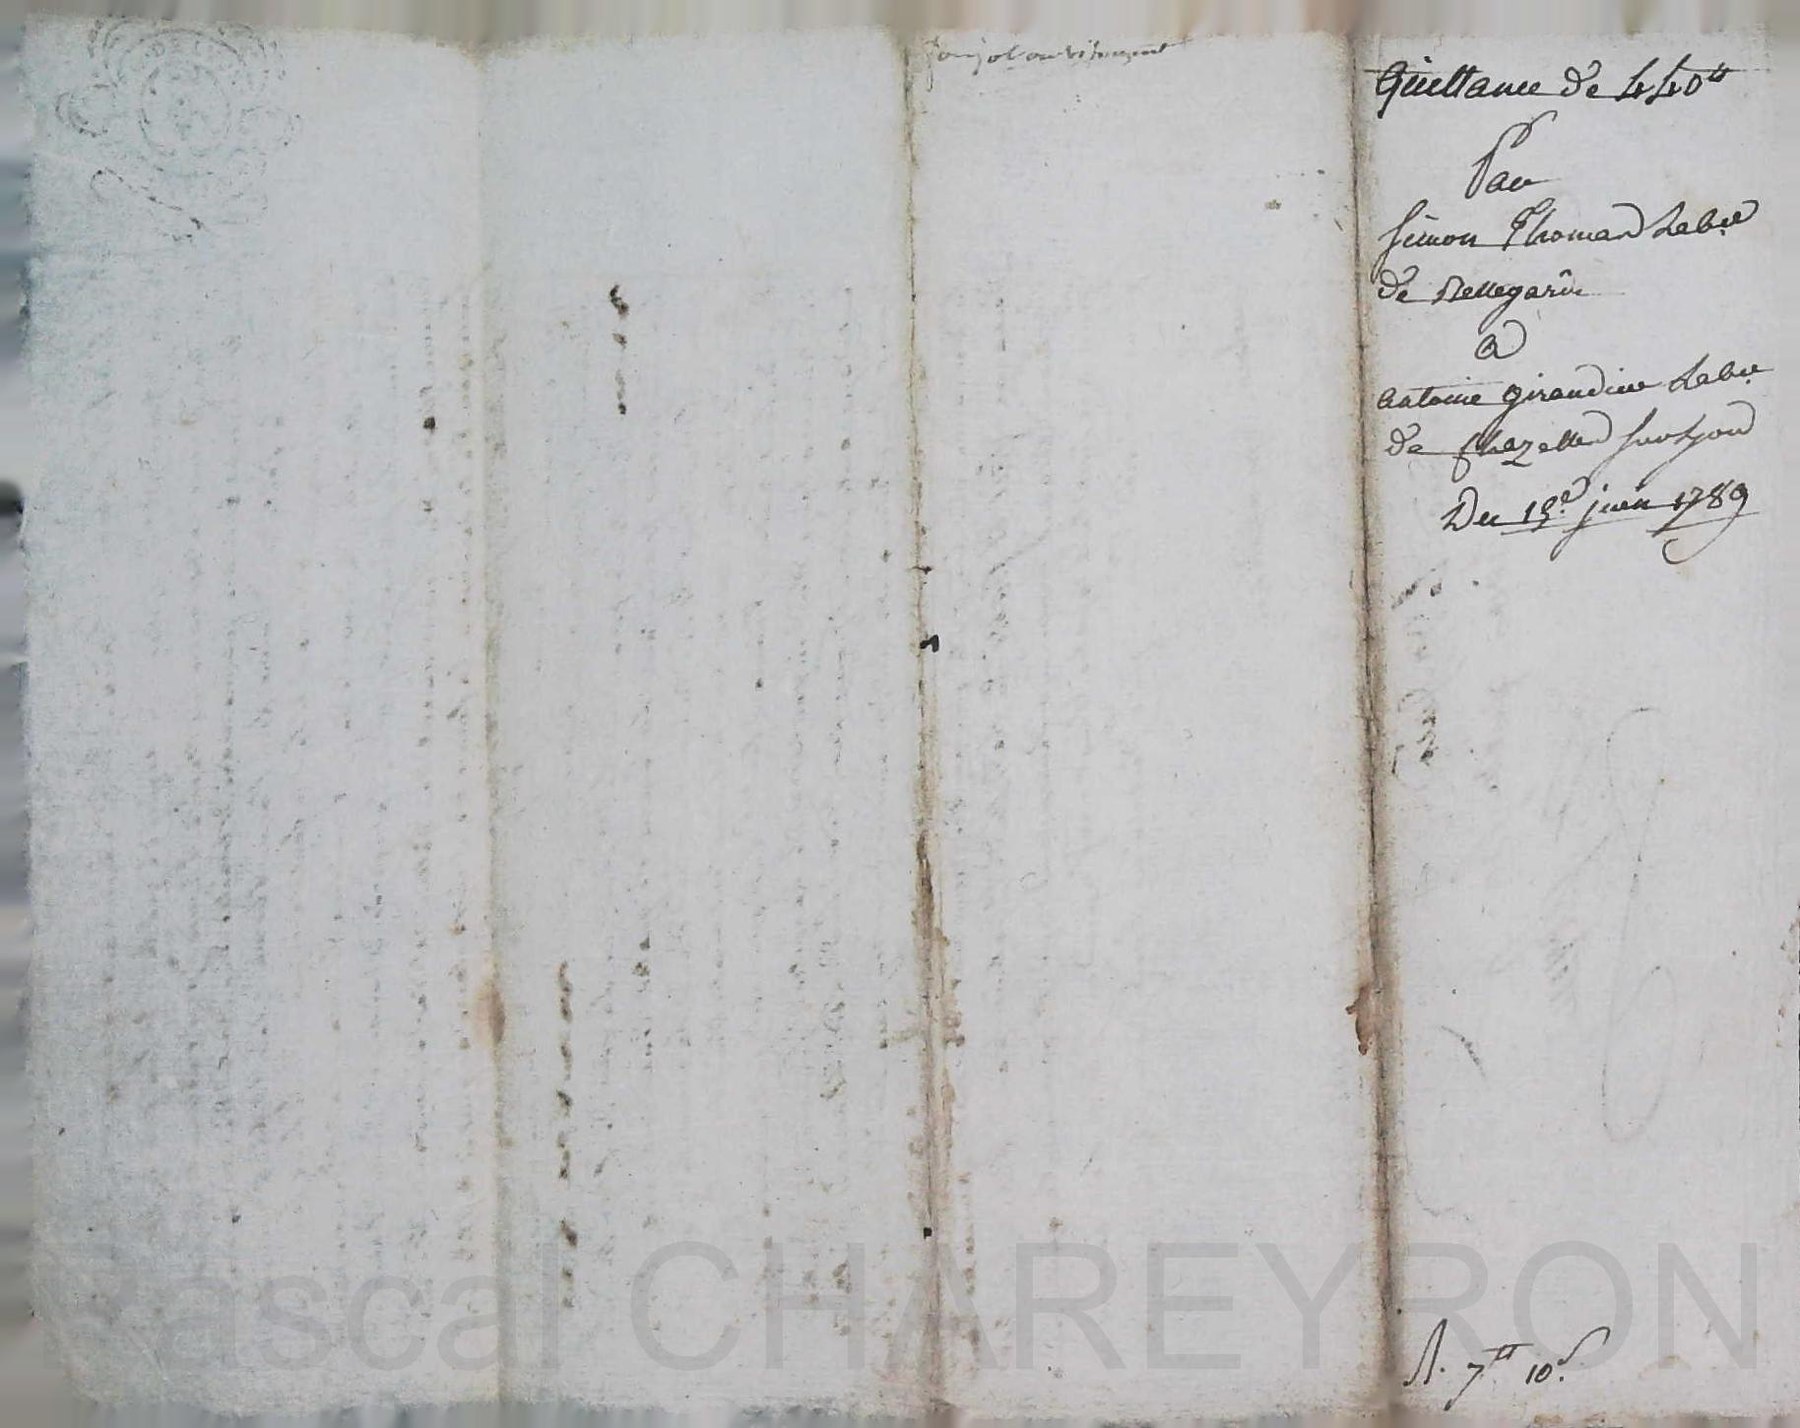 Quittance de 440tt
Par
Simon Thomas Labr
de Bellegarde
a
antoine girandier Labr
de Chazelles sur Lyon
Du 15e juin 1789
R. 7tt 10s
Pascal CHAREYRON